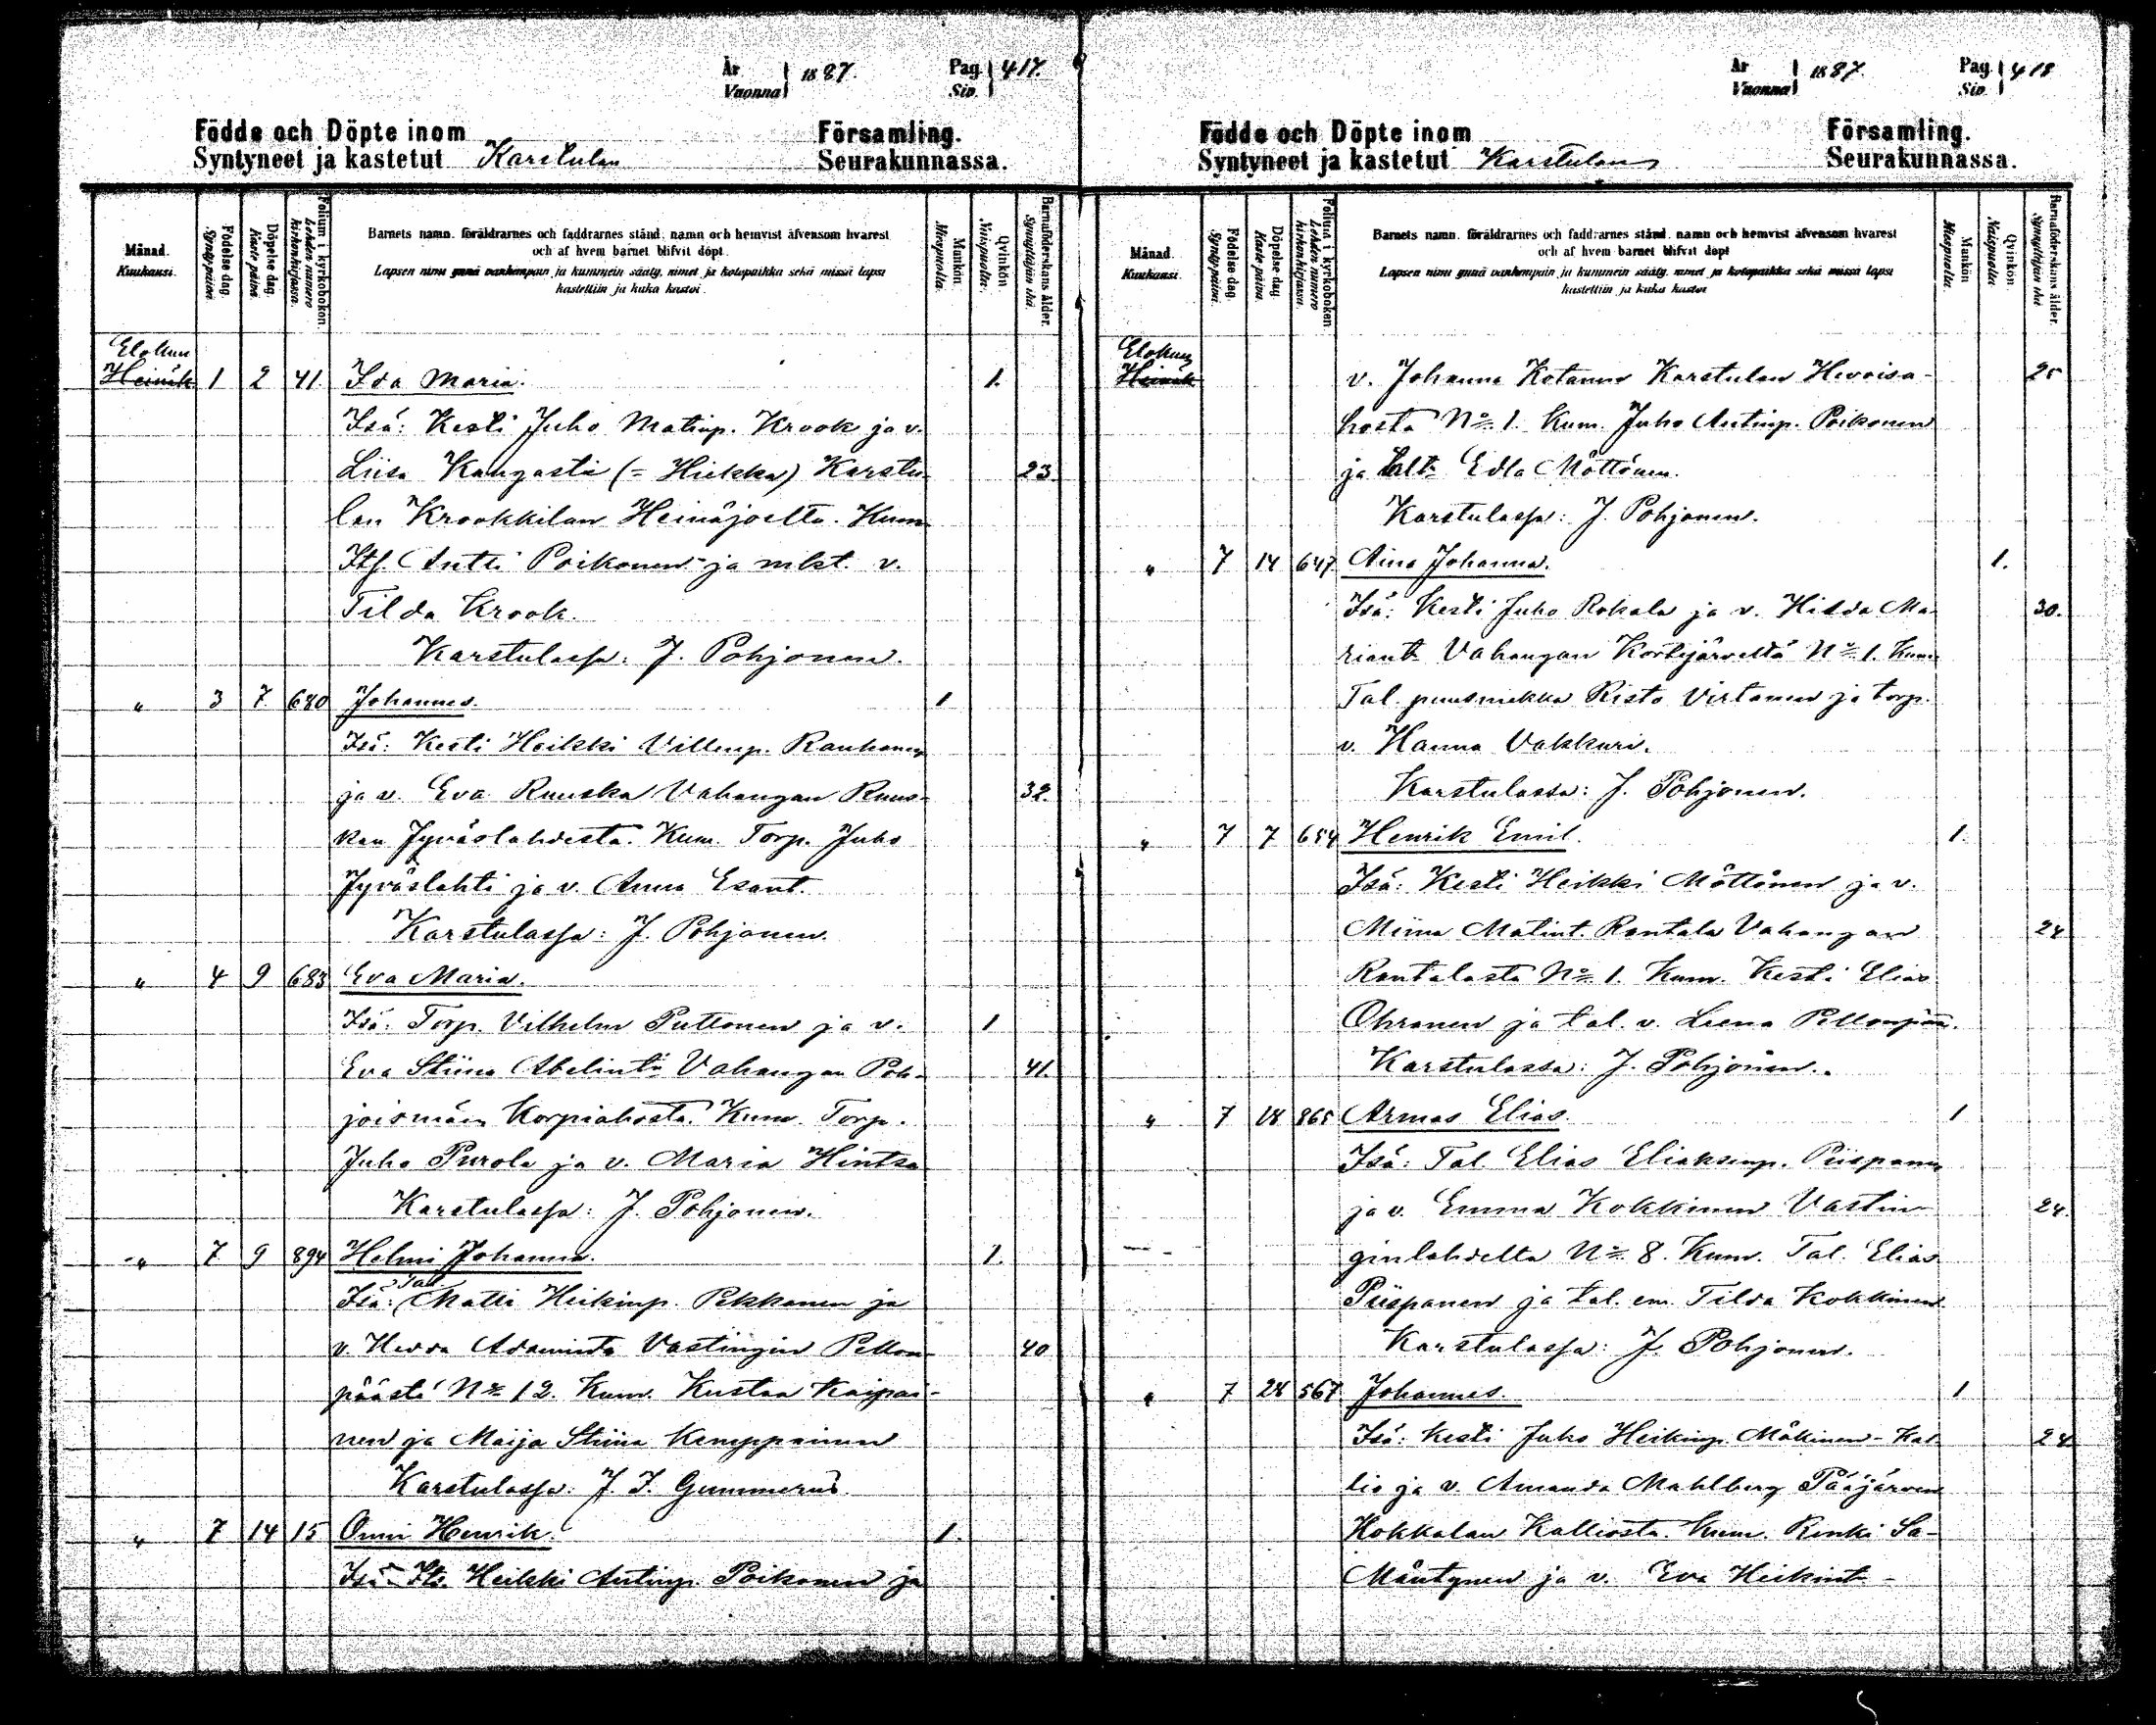 År Vuonna 1887. Pag. Siv. 417.
Födde och Döpte inom Församling.
Syntyneet ja kastetut Karstulan Seurakunnassa.
Månad. Kuukausi.
Födelse dag. Synty päivä.
Döpelse dag. Kaste päivä.
Folium i kyrkoboken. Lehden numero kirkonkirjassa.
Barnets namn, föräldrarnes och faddrarnes stånd, namn och hemvist äfvensom hvarest
och af hvem barnet blifvit döpt.
Lapsen nimi ynnä vanhempain ja kummein sääty, nimet ja kotopaikka sekä missä lapsi
kastettiin ja kuka kastoi.
Mankön Miespuolia.
Qvinkön Naispuolia.
Barnaföderskans ålder. Synnyttäjän ikä.
Elokuu
Heinäk 1 2 41. Ida Maria. 1.
Isä: Kesti Juho Matinp. Krook ja v.
Liisa Kangasti (= Hiekka) Karstu- 23.
lan Krookkilan Heinäjoelta. Kum.
Its. Antti Poikonen ja mkt. v.
Tilda Krook.
Karstulassa: J. Pohjonen.
" 3 7. 680 Johannes. 1
Isä: Kesti Heikki Villenp. Rauhanen
ja v. Eva Ruuska Vahangan Ruus- 32.
kan Jyväslahdesta. Kum. Torp. Juho
Jyväslahti ja v. Anna Esant.
Karstulassa: J. Pohjonen.
" 4 9 683 Eva Maria.
Isä: Torp. Vilhelm Puttonen ja v. 1
Eva Stiina Abelint. Vahangan Poh- 41.
joismäen Korpiahosta. Kum. Torp.
Juho Purola ja v. Maria Hintsa
Karstulassa: J. Pohjonen.
" 7 9 894 Helmi Johanna. 1.
Isä: Tal. Matti Heikinp. Pekkanen ja
v. Hedda Adamint. Vastingin Pellon- 40
päästä No 12. Kum. Kustaa Kaipai-
nen ja Maija Stiina Kemppainen
Karstulassa: J. I. Gummerus.
" 7 14 15 Onni Henrik. 1.
Isä: Its. Heikki Antinp. Poikonen ja
År Vuonna 1887. Pag. Siv. 418
Födde och Döpte inom Församling.
Syntyneet ja kastetut Karstulan Seurakunnassa.
Månad. Kuukausi.
Födelse dag. Synty päivä.
Döpelse dag. Kaste päivä.
Folium i kyrkoboken. Lehden numero kirkonkirjassa.
Barnets namn, föräldrarnes och faddrarnes stånd, namn och hemvist äfvensom hvarest
och af hvem barnet blifvit döpt
Lapsen nimi ynnä vanhempain ja kummein sääty, nimet ja kotopaikka sekä missä lapsi
kastettiin ja kuka kastoi
Mankön Miespuolia.
Qvinkön Naispuolia.
Barnaföderskans ålder. Synnyttäjän ikä.
Elokuu
Heinäk v. Johanna Kotanen Karstulan Hevoisa- 25
hosta No 1. Kum. Juho Antinp. Poikonen
ja Edla Möttönen.
Karstulassa: J. Pohjonen.
" 7 14 647 Aina Johanna. 1.
Isä: Kesti Juho Rokala ja v. Hilda Ma- 30.
riant. Vahangan Kortejärveltä No 1. Kum.
Tal. puusniekka Risto Virtanen ja torp.
v. Hanna Vakkuri.
Karstulassa: J. Pohjonen.
" 7 7 654 Henrik Emil. 1.
Isä: Kesti Heikki Möttönen ja v.
Miina Matint. Rantala Vahangan 24
Rantalasta No 1. Kum. Kesti Elias
Ohranen ja tal. v. Leena Pellonpää.
Karstulassa: J. Pohjonen.
" 7 18 865 Armas Elias. 1
Isä: Tal. Elias Eliaksenp. Piispanen
ja v. Emma Kokkinen Vastin- 24.
ginlahdelta No 8. Kum. Tal. Elias
Piispanen ja tal. em. Tilda Kokkinen.
Karstulassa: J. Pohjonen.
" 7 28 567 Johannes. 1
Isä: Kesti Juho Heikinp. Mäkinen-Kal- 24
lio ja v. Amanda Mahlberg Pääjärven
Kokkalan Kalliosta. Kum. Renki Sa-
Mäntynen ja v. Eva Heikint. -